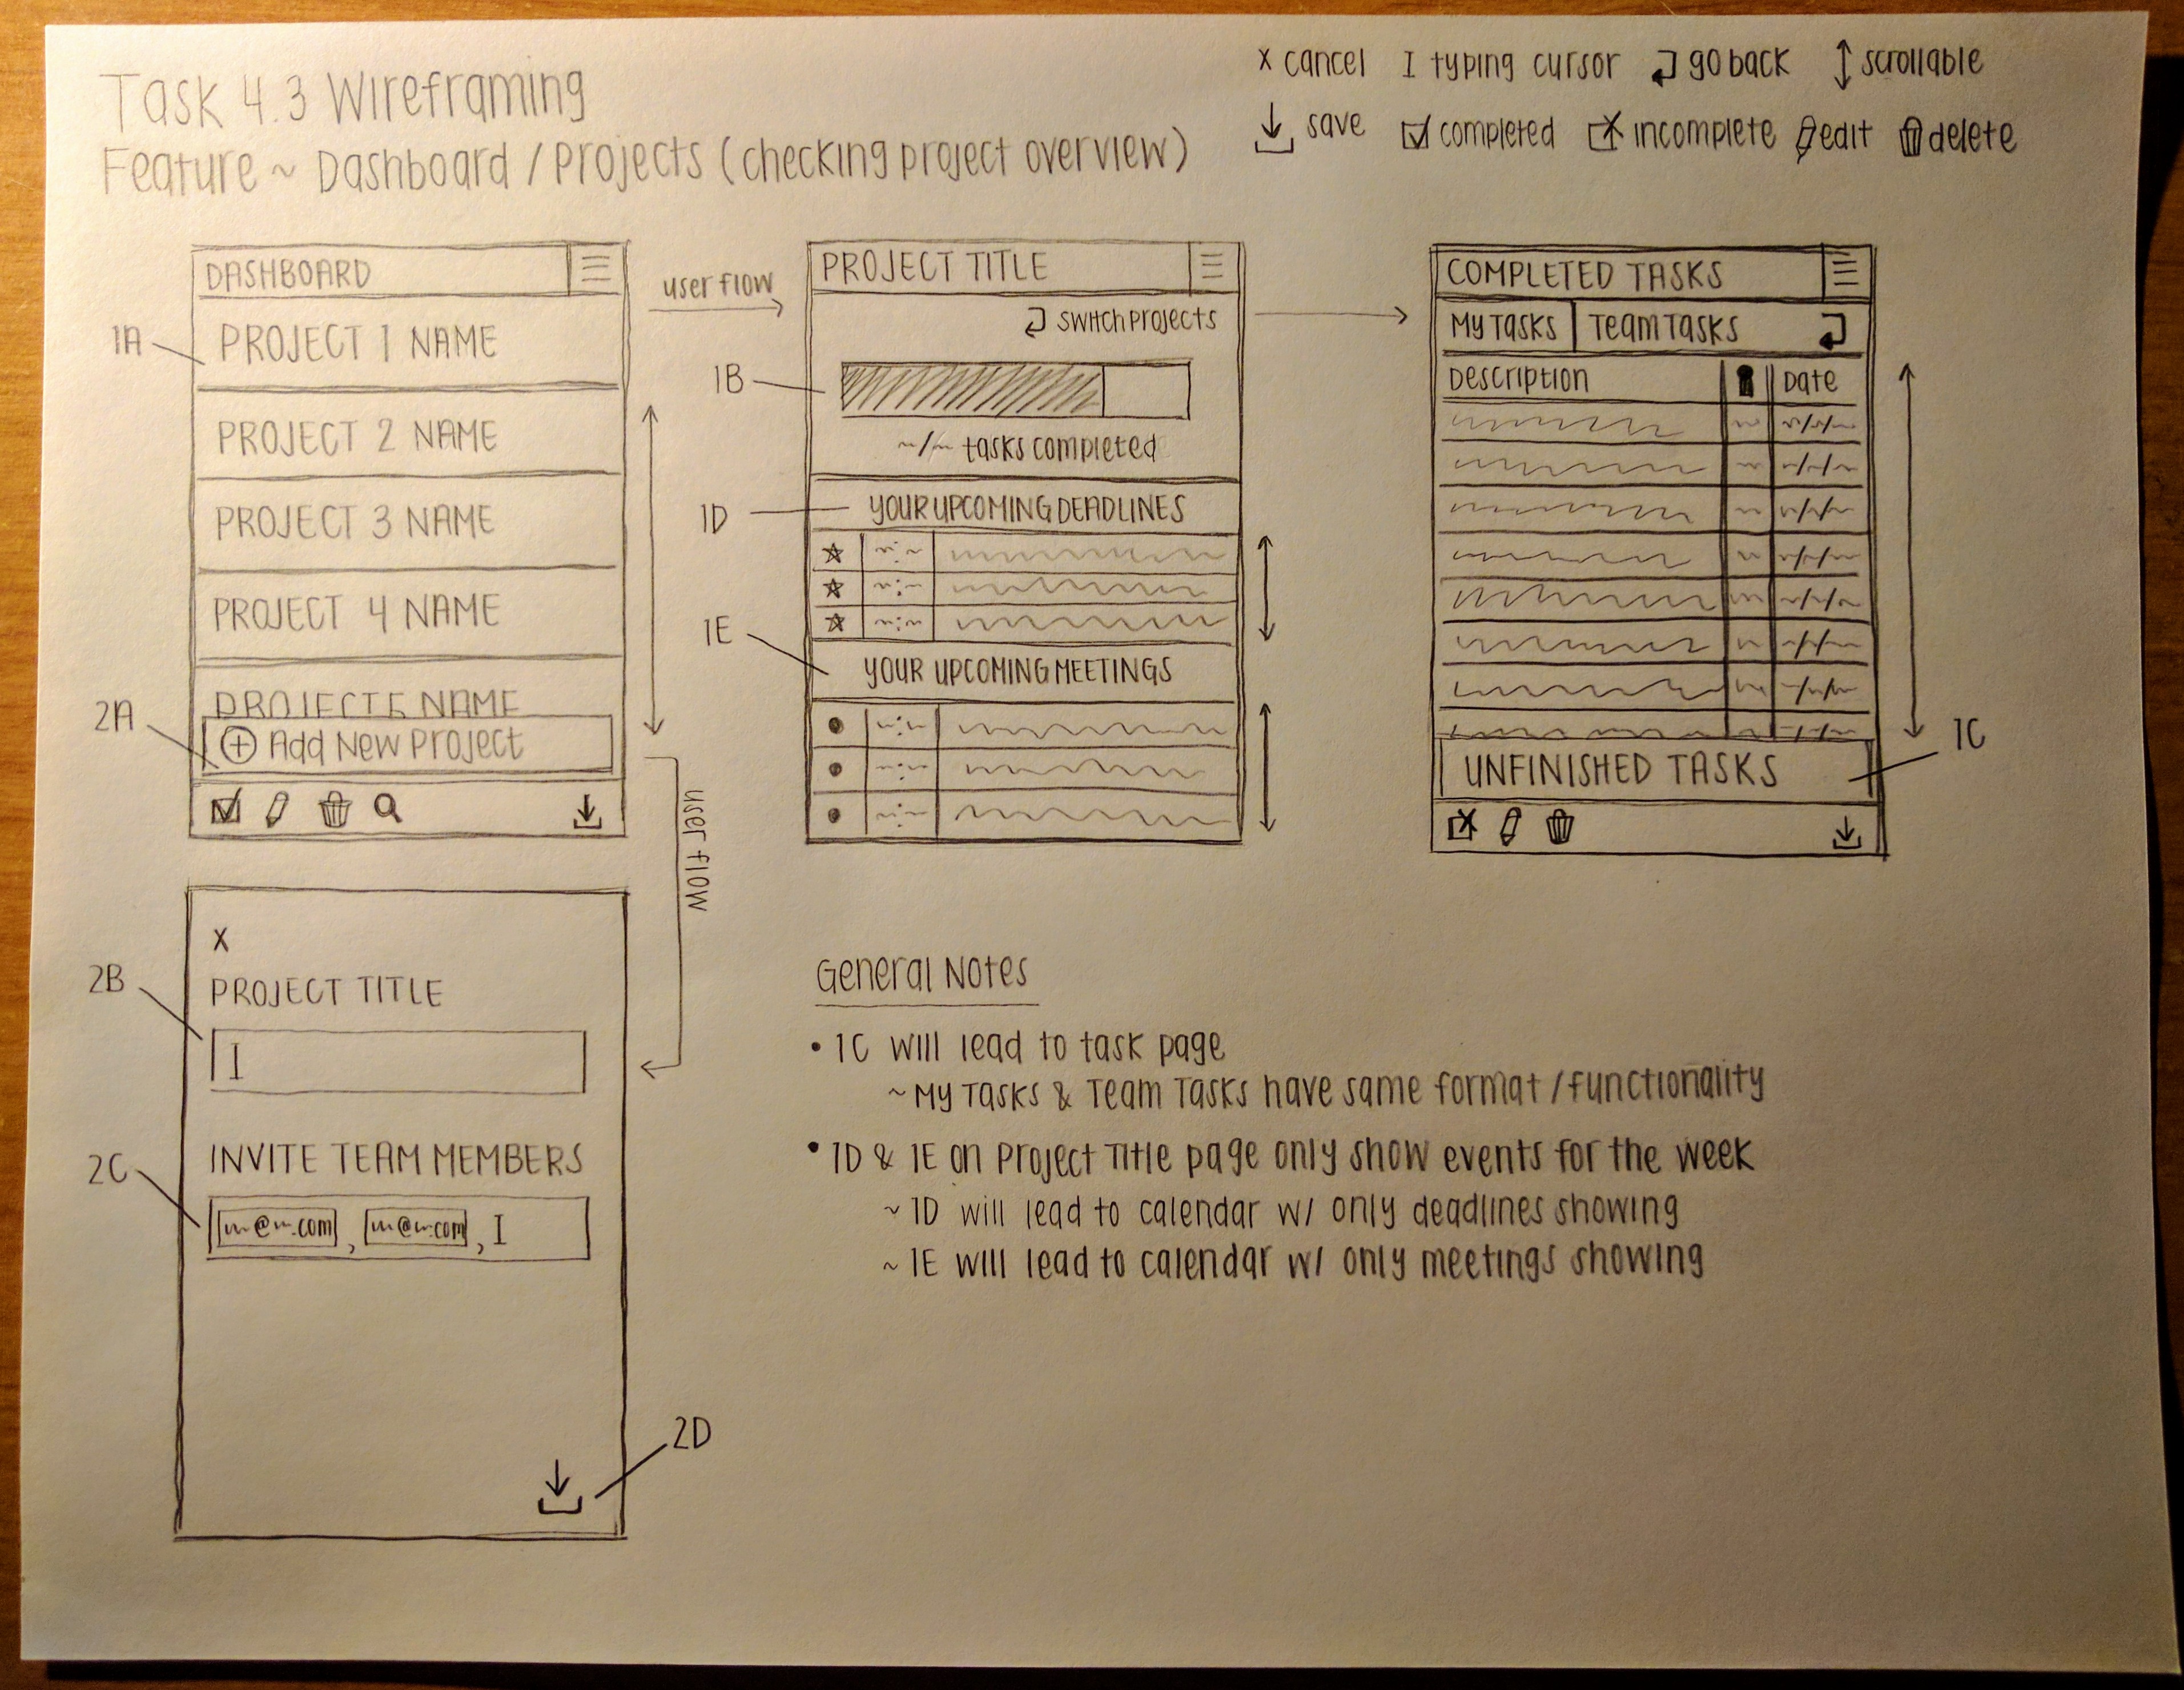 Task 4.3 Wireframing
Feature ~ Dashboard / Projects (checking project overview)
x cancel I typing cursor go back scrollable
save completed incomplete edit delete
DASHBOARD
1A
PROJECT 1 NAME
PROJECT 2 NAME
PROJECT 3 NAME
PROJECT 4 NAME
PROJECT 5 NAME
2A
Add New Project
user flow
user flow
PROJECT TITLE
switch projects
1B
~/~ tasks completed
1D
YOUR UPCOMING DEADLINES
1E
YOUR UPCOMING MEETINGS
COMPLETED TASKS
My Tasks Team Tasks
Description Date
UNFINISHED TASKS
1C
x
2B
PROJECT TITLE
I
2C
INVITE TEAM MEMBERS
~@~.com , ~@~.com , I
2D
General Notes
• 1C will lead to task page
~ My Tasks & Team Tasks have same format / functionality
• 1D & 1E on Project Title page only show events for the week
~ 1D will lead to calendar w/ only deadlines showing
~ 1E will lead to calendar w/ only meetings showing